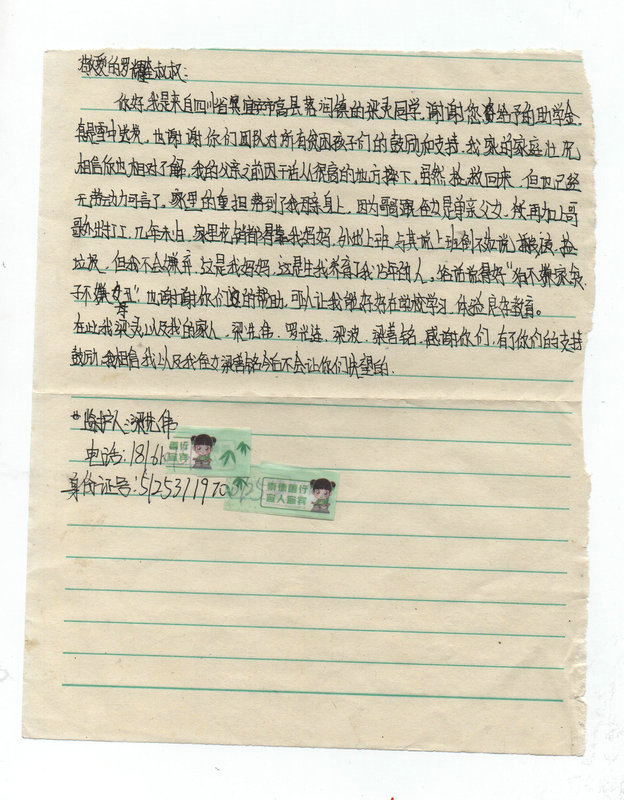 敬爱的罗叔叔:
你好,我是来自四川省宜宾市高县落润镇的梁灵同学,谢谢您资给予的助学金,
有是雪中送炭,也谢谢你们团队对所有贫困孩子们的鼓励和支持,我家的家庭壮况
相信你也相对了解,我的父亲之前因干活从很高的地方摔下,虽然抢救回来,但也已经
无劳动力可言了,家里的重担落到了我母亲身上,因为哥哥跟侄女是单亲父女,然再加上哥
哥外出打工,几年未归,家里花销都是靠我妈妈,外出上班,与其说上班倒不如说 捡
垃圾,但我不会嫌弃,这是我妈妈,这是生我养育了我15年的人。俗话说得好“狗不嫌家贫
子不嫌母 ”也谢谢你们的帮助,可以让我能好好在学校学习,体验良好教育。
在此我梁灵以及我的家人,梁先伟,罗光连,梁波,梁善铭,感谢你们,有了你们的支持
鼓励,我相信我以及我侄女梁善铭今后不会让你们失望的.
监护人:梁先伟
电话:18161
身份证号:512531197
青年善行
宜人宜宾